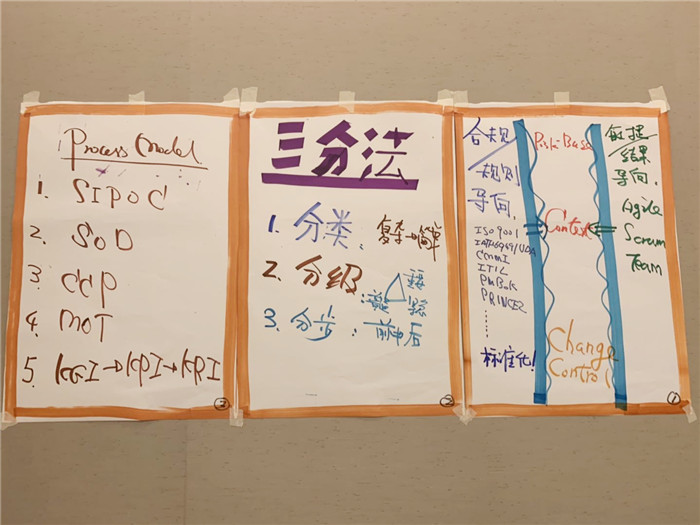 Process Model
1. SIPOC
2. SOD
3. CCP
4. MOT
5. KGI→KPI→KRI
③
三分法
1. 分类: 复杂→简单
2. 分级:
3. 分步: 前中后
②
合规/
规则
导向,
ISO9001
CMMI
ITIL
PMBOK
PRINCE2
......
标准化!
Risk-Base
Context
Change
Control
敏捷/
结果
导向,
Agile
Scrum
Team
①